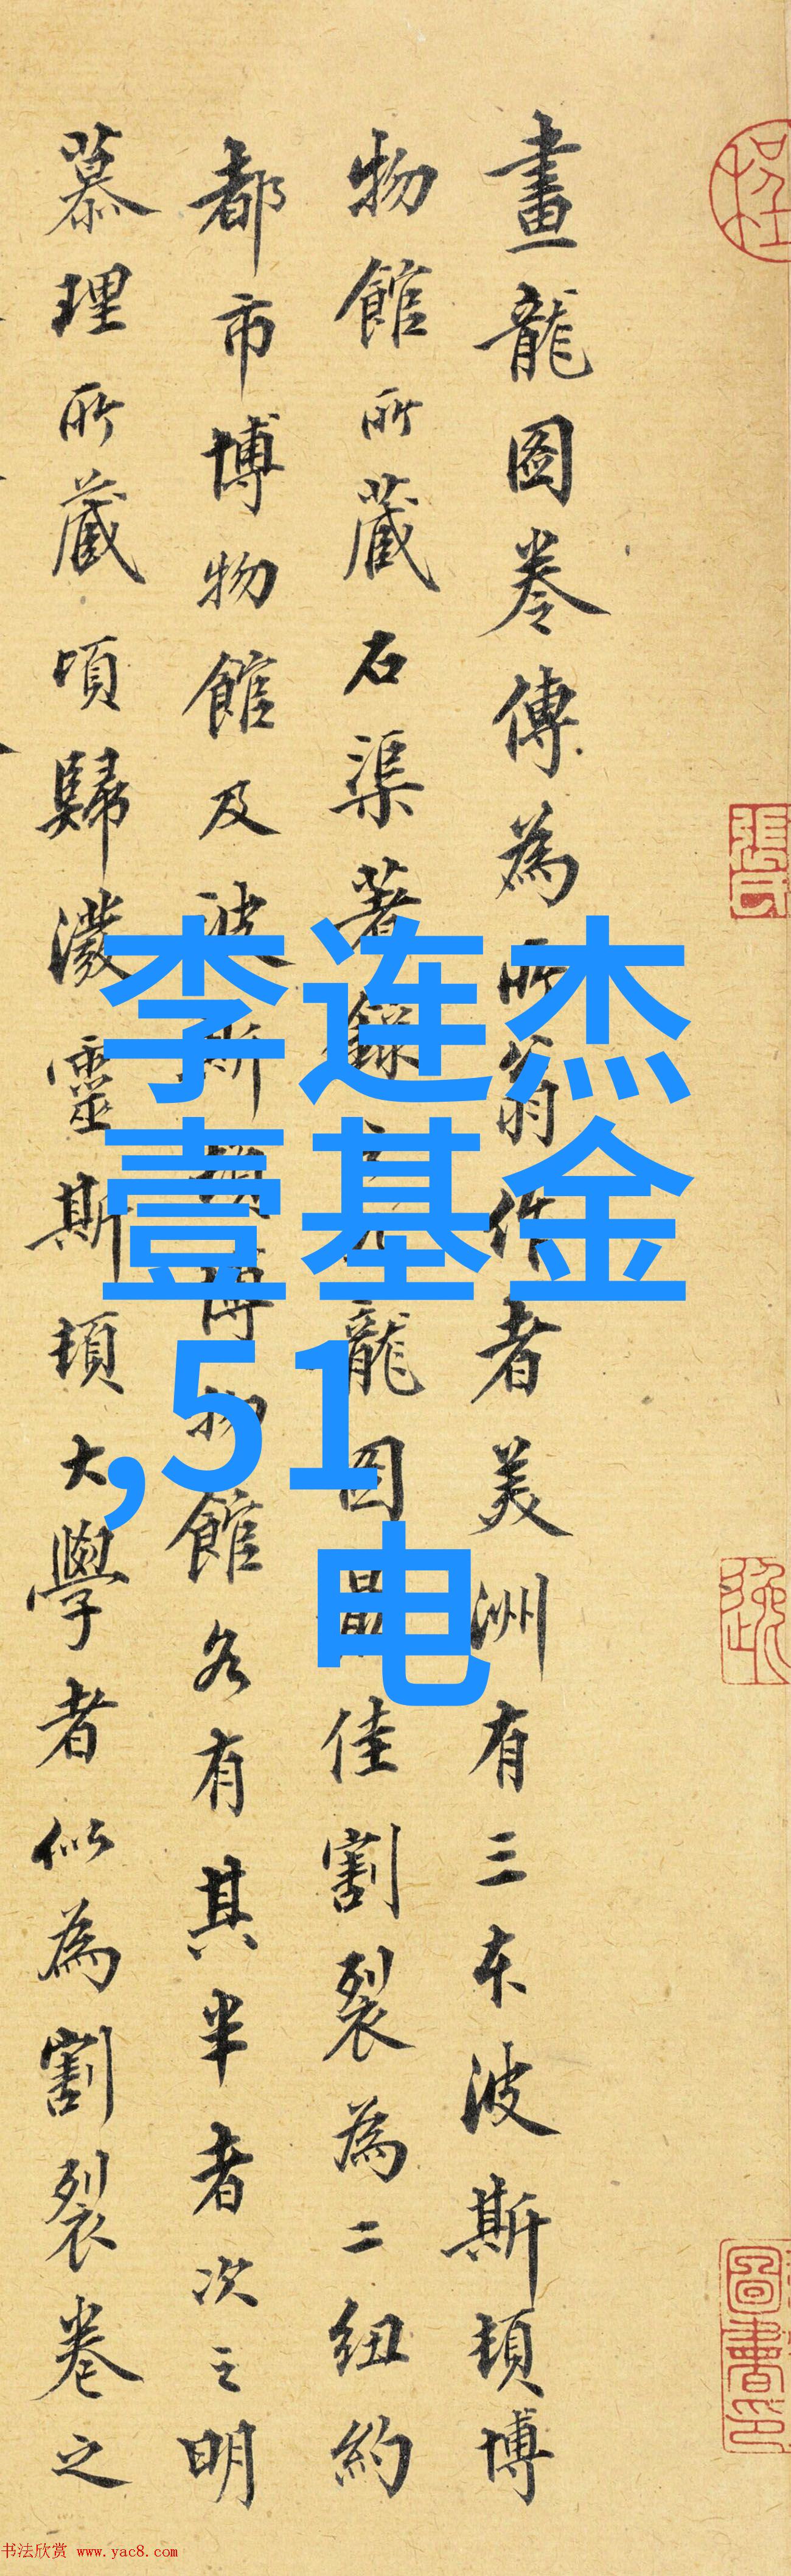 畫龍圖卷傳為所翁作者美洲有三本波斯頓博
物館所藏石渠著錄龍圖最佳割裂為二紐約
都市博物館及波斯頓博物館各有其半者次之明
慕理所藏頃歸濮靈斯頓大學者似為割裂卷之
李连杰
壹基金
,51
电
張氏
圖書印
书法欣赏 www.yac8.com